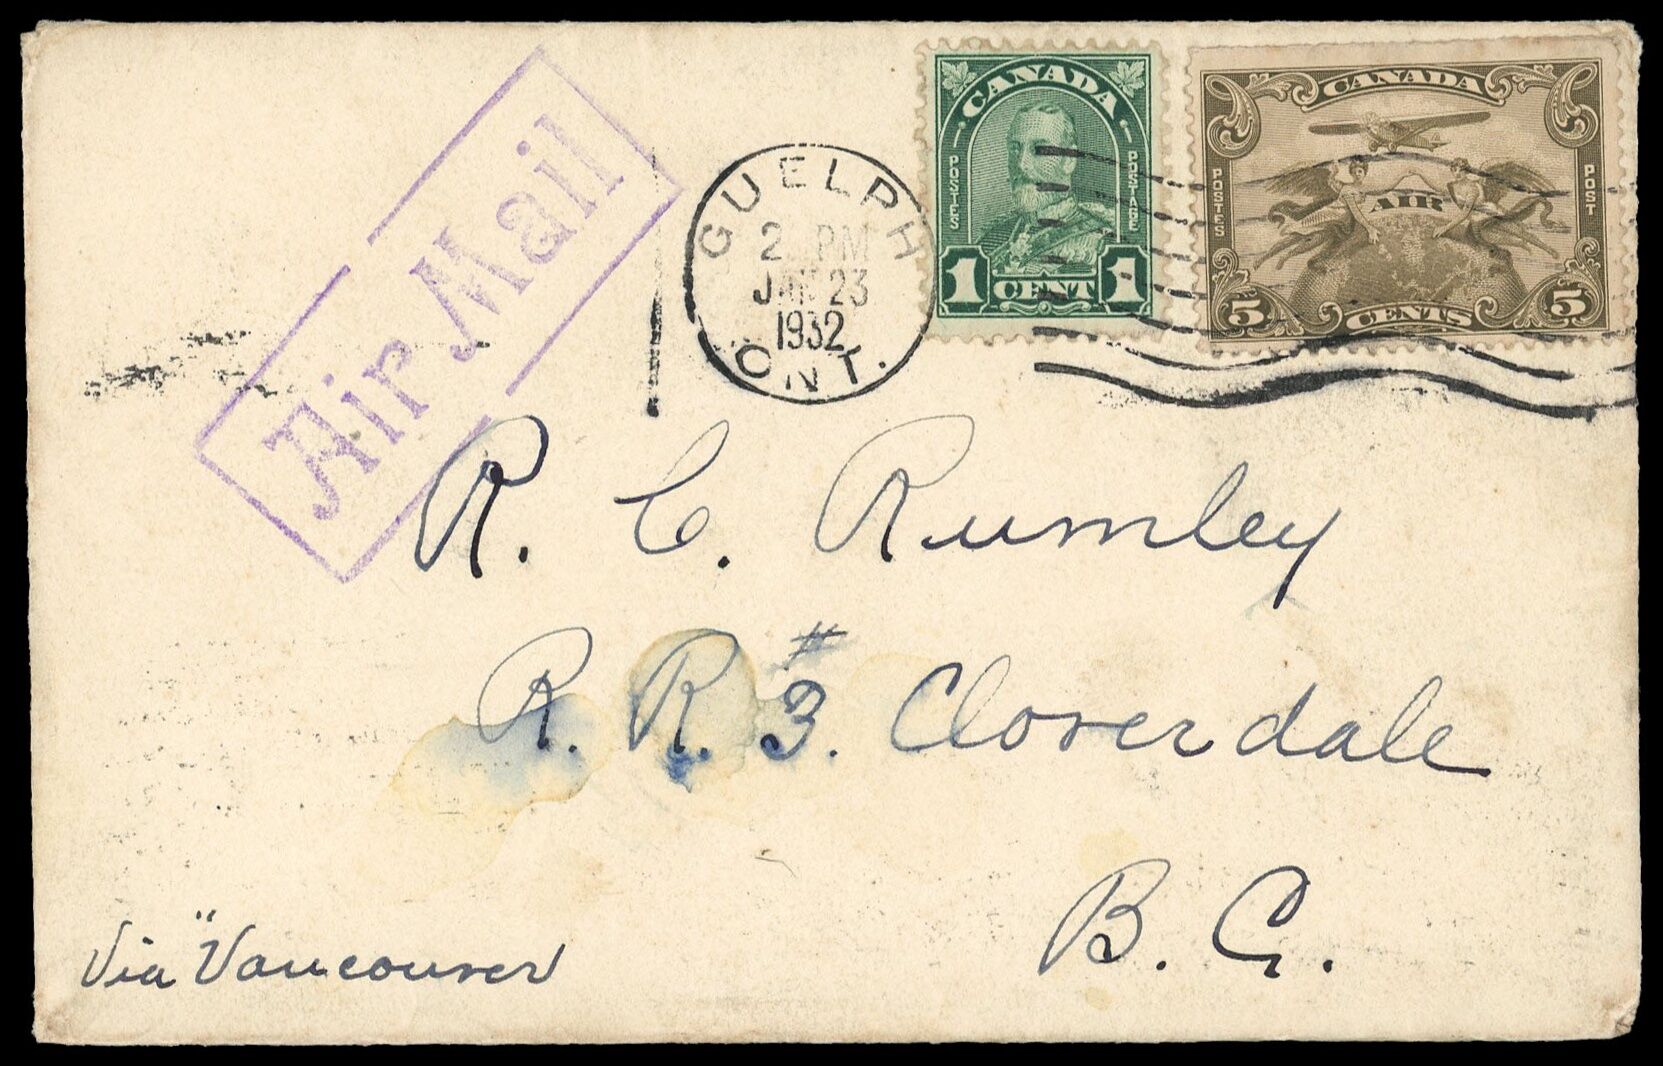 Air Mail
GUELPH
PM
JAN 23
1932
ONT.
CANADA
POSTES
POSTAGE
1 CENT 1
CANADA
POSTES
AIR
POST
5 CENTS 5
R. C. Rumley
R. R. #3. Cloverdale
B. C.
Via "Vancouver